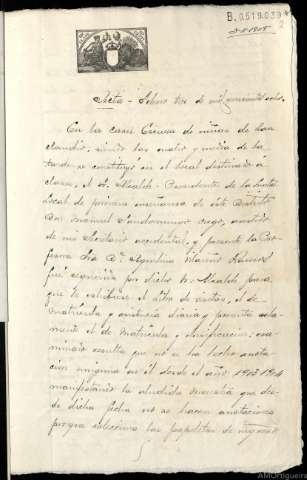 B.0.519.039
2
Acta - Febrero tres de mil novecientos ocho.
En la casa Escuela de niñas de San
Claudio, siendo las cuatro y media de la
tarde se constituyó en el local destinado á
clases, el Sr. Alcalde-Presidente de la Junta
local de primera enseñanza de este Distrito
Don Manuel Sandomingo asistido
de mi Secretario accidental, y presente la Pro-
fesora
fué requerida por dicho Sr. Alcalde para
que le exhibiese el libro de visitas, el de
matrícula y asistencia diaria y permita sola-
mente el de matrícula y clasificación, exa-
minado resulta que no se ha hecho anota-
ción ninguna en él desde el año 1903-1904
manifestando la aludida maestra que des-
de dicha fecha no se hacen anotaciones
porque las papeletas de ingreso
AMOrtigueira